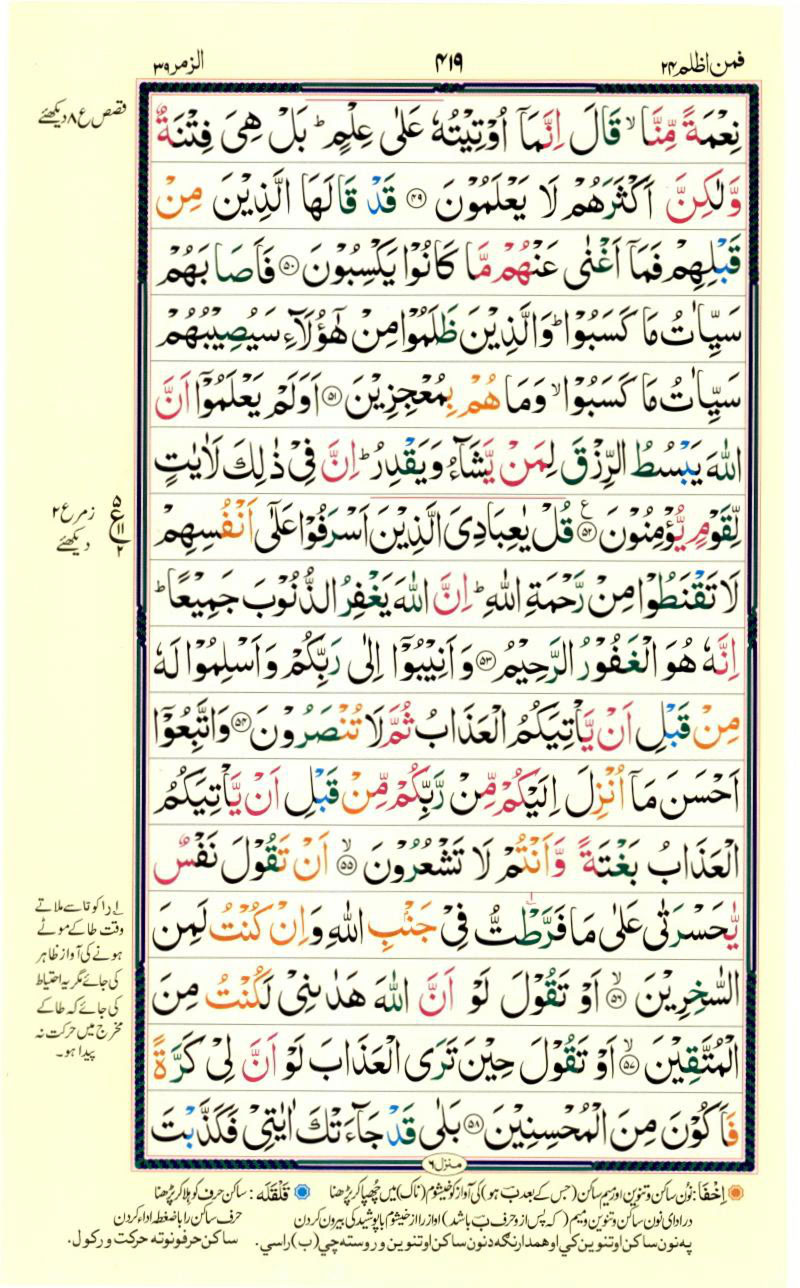 فمن اظلم ۲۴
۴۱۹
الزمر ۳۹
نِعْمَةً مِّنَّا ۙ قَالَ اِنَّمَاۤ اُوْتِيْتُهٗ عَلٰى عِلْمٍ ؕ بَلْ هِىَ فِتْنَةٌ
وَّلٰكِنَّ اَكْثَرَهُمْ لَا يَعْلَمُوْنَ ﴿۴۹﴾ قَدْ قَالَهَا الَّذِيْنَ مِنْ
قَبْلِهِمْ فَمَاۤ اَغْنٰى عَنْهُمْ مَّا كَانُوْا يَكْسِبُوْنَ ﴿۵۰﴾ فَاَصَابَهُمْ
سَيِّاٰتُ مَا كَسَبُوْا ؕ وَالَّذِيْنَ ظَلَمُوْا مِنْ هٰٓؤُلَآءِ سَيُصِيْبُهُمْ
سَيِّاٰتُ مَا كَسَبُوْا ۙ وَمَا هُمْ بِمُعْجِزِيْنَ ﴿۵۱﴾ اَوَلَمْ يَعْلَمُوْۤا اَنَّ
اللّٰهَ يَبْسُطُ الرِّزْقَ لِمَنْ يَّشَآءُ وَيَقْدِرُ ؕ اِنَّ فِىْ ذٰلِكَ لَاٰيٰتٍ
لِّقَوْمٍ يُّؤْمِنُوْنَ ﴿۵۲﴾ ع قُلْ يٰعِبَادِىَ الَّذِيْنَ اَسْرَفُوْا عَلٰٓى اَنْفُسِهِمْ
لَا تَقْنَطُوْا مِنْ رَّحْمَةِ اللّٰهِ ؕ اِنَّ اللّٰهَ يَغْفِرُ الذُّنُوْبَ جَمِيْعًا ؕ
اِنَّهٗ هُوَ الْغَفُوْرُ الرَّحِيْمُ ﴿۵۳﴾ وَاَنِيْبُوْۤا اِلٰى رَبِّكُمْ وَاَسْلِمُوْا لَهٗ
مِنْ قَبْلِ اَنْ يَّاْتِيَكُمُ الْعَذَابُ ثُمَّ لَا تُنْصَرُوْنَ ﴿۵۴﴾ وَاتَّبِعُوْۤا
اَحْسَنَ مَاۤ اُنْزِلَ اِلَيْكُمْ مِّنْ رَّبِّكُمْ مِّنْ قَبْلِ اَنْ يَّاْتِيَكُمُ
الْعَذَابُ بَغْتَةً وَّاَنْتُمْ لَا تَشْعُرُوْنَ ۙ﴿۵۵﴾ اَنْ تَقُوْلَ نَفْسٌ
يّٰحَسْرَتٰى عَلٰى مَا فَرَّطْتُّ فِىْ جَنْۢبِ اللّٰهِ وَاِنْ كُنْتُ لَمِنَ
السّٰخِرِيْنَ ۙ﴿۵۶﴾ اَوْ تَقُوْلَ لَوْ اَنَّ اللّٰهَ هَدٰىنِىْ لَكُنْتُ مِنَ
الْمُتَّقِيْنَ ۙ﴿۵۷﴾ اَوْ تَقُوْلَ حِيْنَ تَرَى الْعَذَابَ لَوْ اَنَّ لِىْ كَرَّةً
فَاَكُوْنَ مِنَ الْمُحْسِنِيْنَ ﴿۵۸﴾ بَلٰى قَدْ جَآءَتْكَ اٰيٰتِىْ فَكَذَّبْتَ
منزل ۶
قصص ع ۸ دیکھئے
۵
ع ۱۱
۲
زمر ع ۲
دیکھئے
لے را کو تا سے ملاتے
وقت طا کے موٹے
ہونے کی آواز ظاہر
کی جائے مگر یہ احتیاط
کی جائے کہ طا کے
مخرج میں حرکت نہ
پیدا ہو۔
اِخفَا: نُون ساکن و تنوین اور میم ساکن (جس کے بعد بَ ہو) کی آواز کو خیشوم (ناک) میں چھپا کر پڑھنا
قَلْقَلَه: ساکن حرف کو ہلا کر پڑھنا
در ادای نون ساکن و تنوین و میم (که پس از و حرف بَ باشد) اواز را از خیشوم با پوشیدگی بیرون کردن
حرف ساکن را با ضغطه ادا کردن
په نون ساکن او تنوین کي او همدارنگه د نون ساکن او تنوین وروسته چي (ب) راسي.
ساکن حرفو نوته حرکت ورکول.